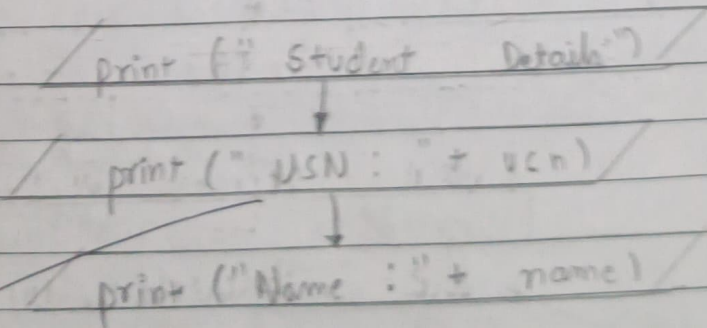 print (" Student Details")
print (" USN : " + usn)
print ("Name : " + name)